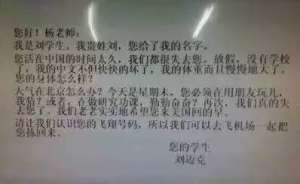 您好！杨老师：
我是刘学生。我贵姓刘，您给了我的名字。
您活在中国的时间太久，我们都很失去您。放假，没有学校
了，我的中文不但快快的坏了，我的体重而且慢慢地大了。
您的身体怎么样？
天气在北京怎么办？今天是星期末，您必须在用朋友玩儿，
我信？或者，在做研究功课，勤勤奋奋？再次，我们真的失
去您了。我们老老实实地希望您来美国回的早。
请让我们认识您的飞翔号码，所以我们可以去飞机场一起把
您拣回来。
您的学生
刘迈克